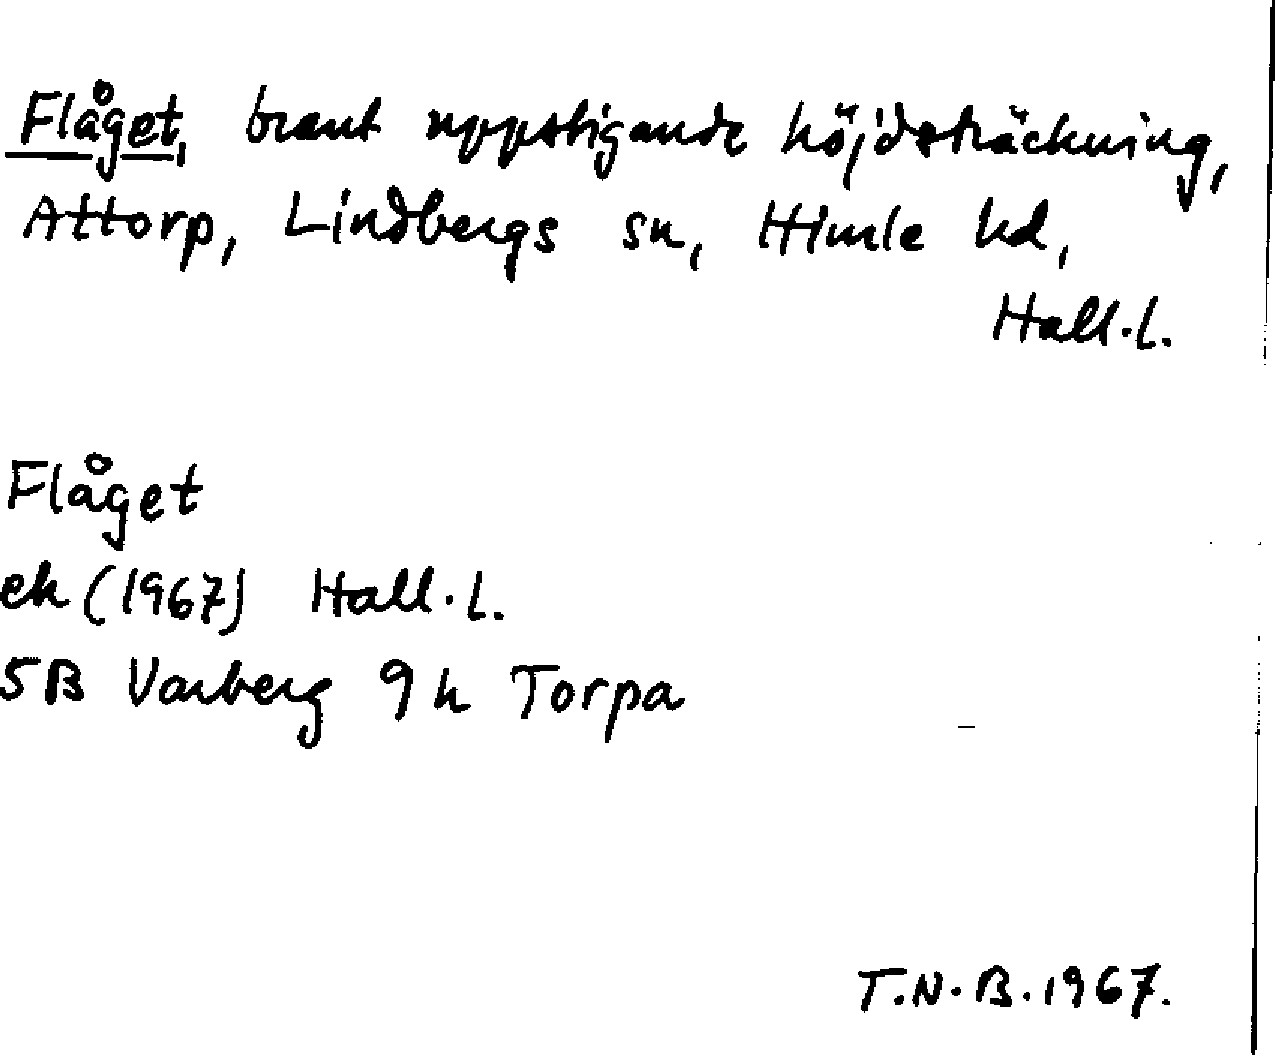 Flåget, brant uppstigande höjdsträckning,
Attorp, Lindbergs sn, Himle hd,
Hall.l.
Flåget
ek (1967) Hall.l.
5B Varberg 9h Torpa
T.N.B.1967.